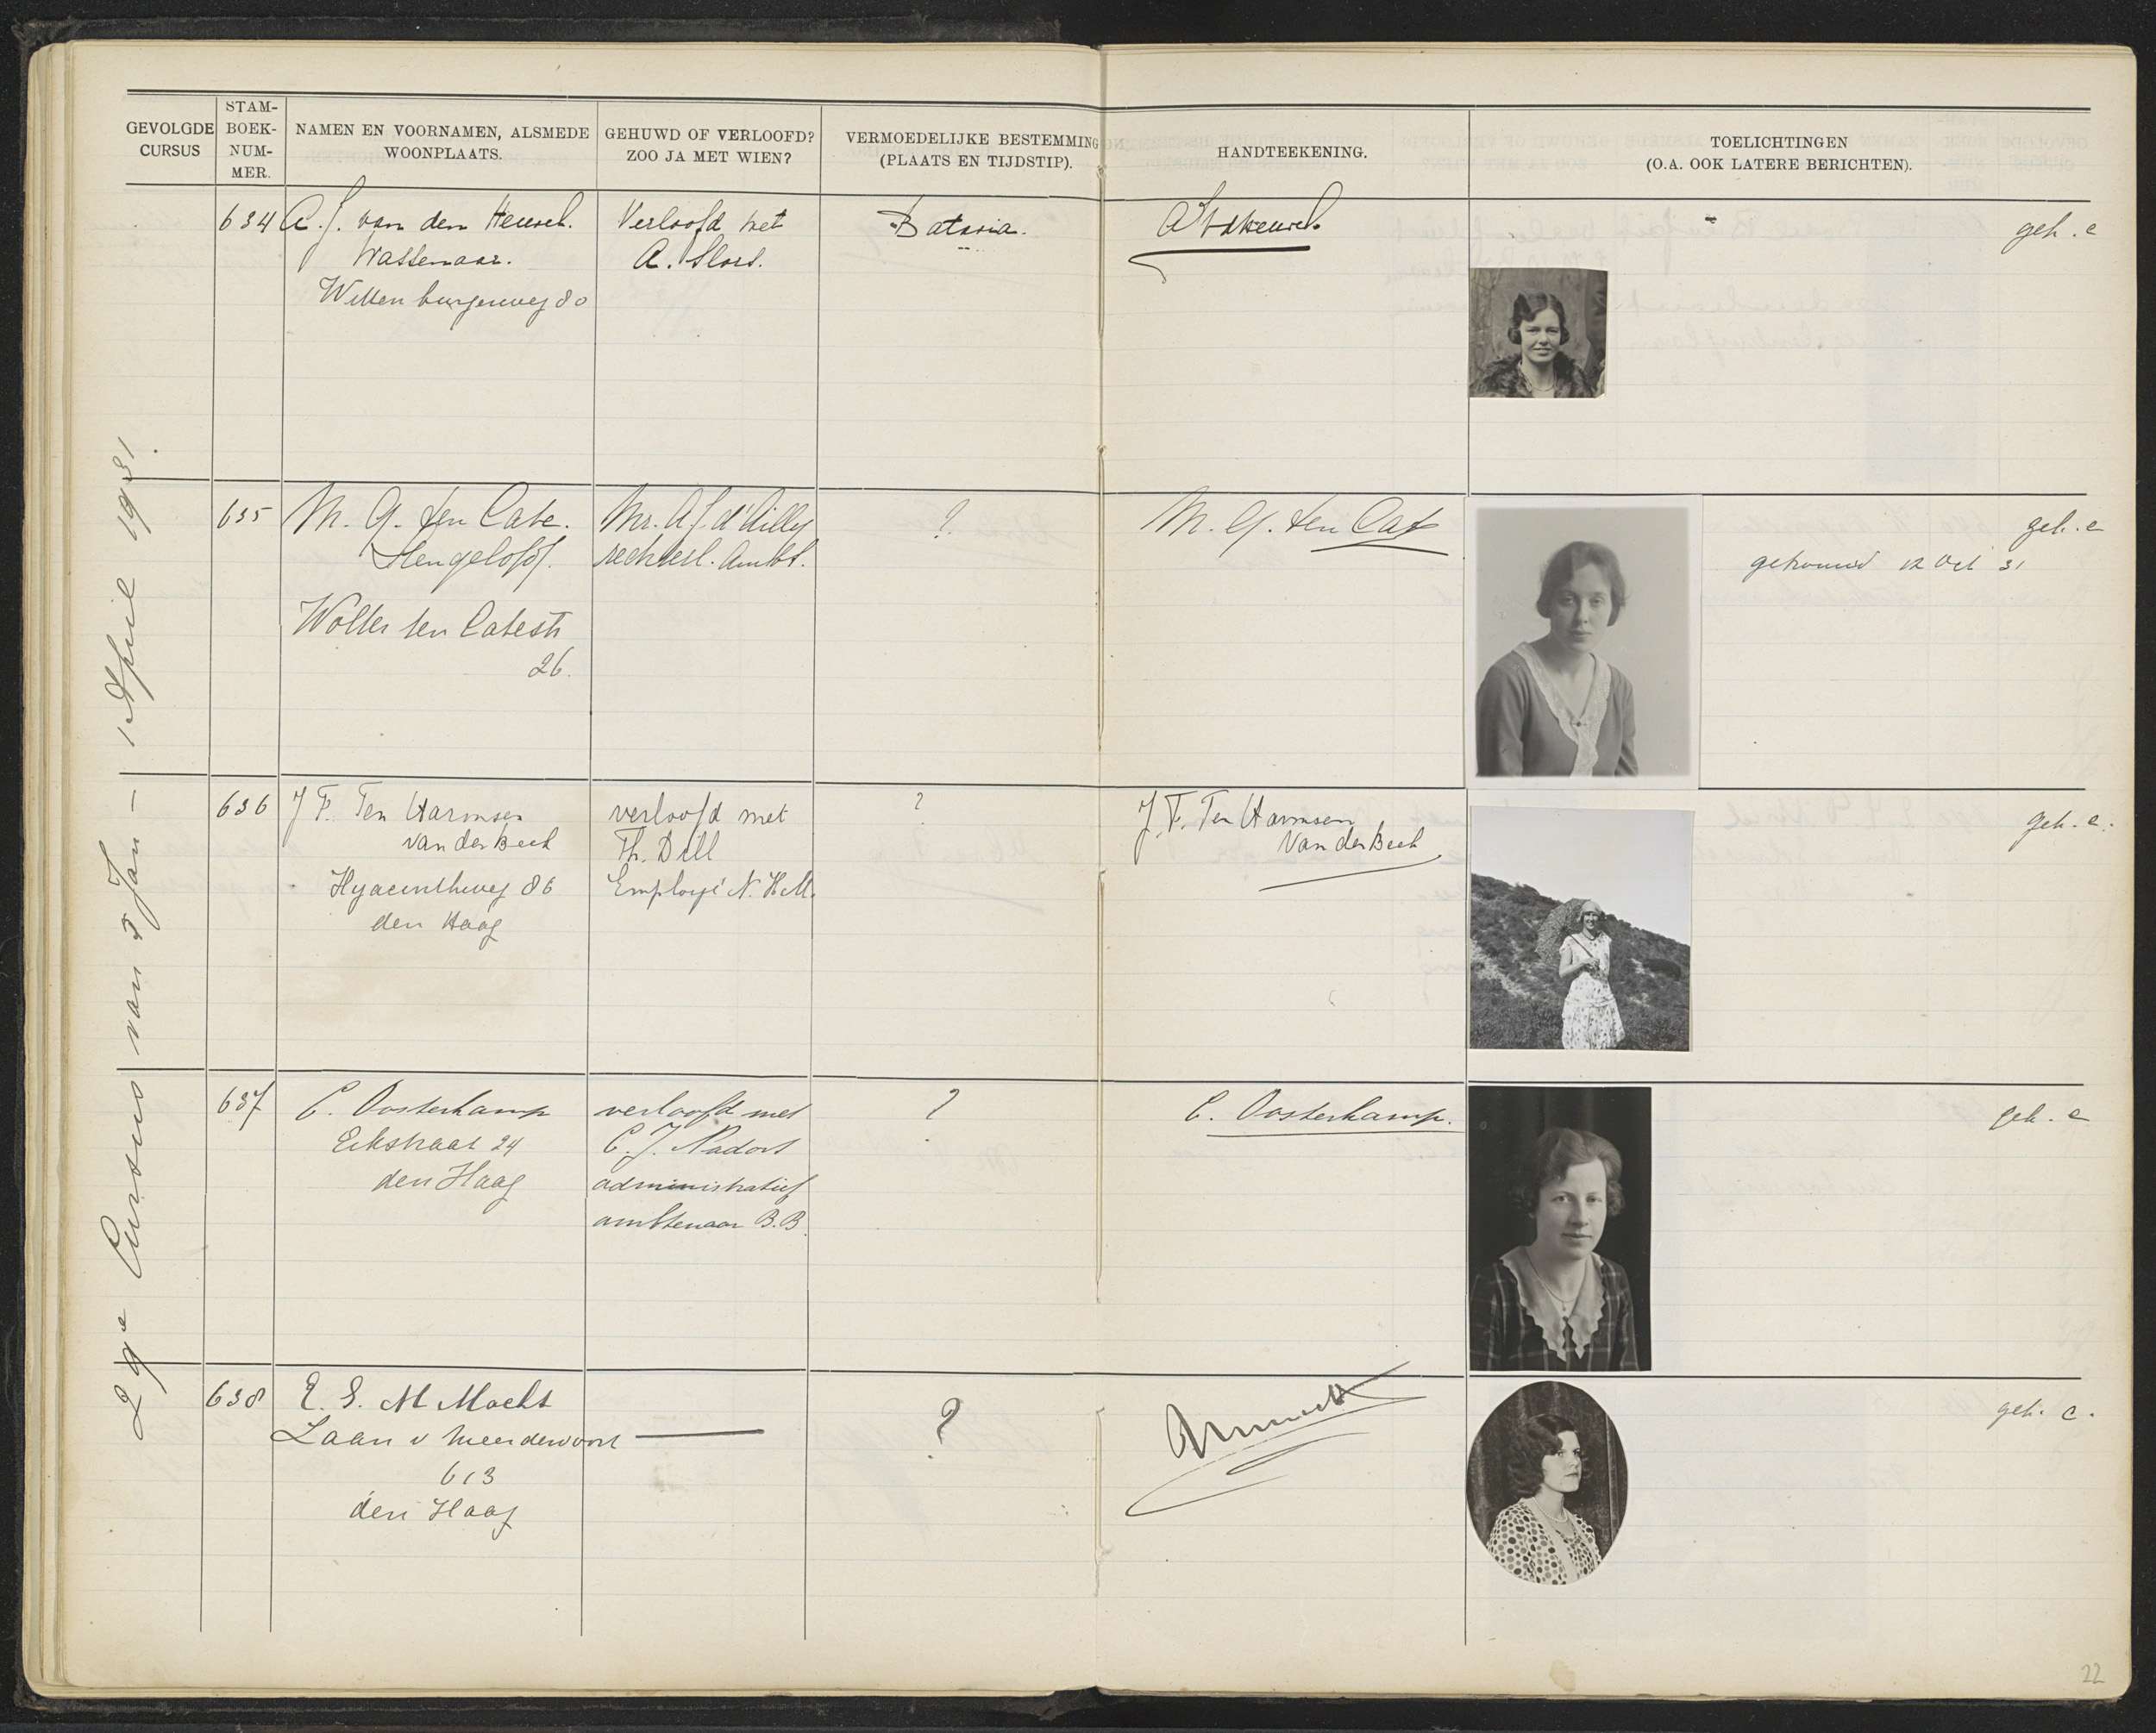 GEVOLGDE
CURSUS
STAM-
BOEK-
NUM-
MER.
NAMEN EN VOORNAMEN, ALSMEDE
WOONPLAATS.
GEHUWD OF VERLOOFD?
ZOO JA MET WIEN?
VERMOEDELIJKE BESTEMMING
(PLAATS EN TIJDSTIP).
HANDTEEKENING.
TOELICHTINGEN
(O.A. OOK LATERE BERICHTEN).
29e Cursus van 8 Jan – 1 April 1931.
634
A. J. van den Heuvel.
Wassenaar.
Wittenburgerweg 80
Verloofd met
A.
Batavia.
geh. c
635
M. G. ten Cate.
Hengelo(O).
Wolter ten Catestr
26.
Mr. A. J. d'Ailly
rechterl. Ambt.
?
M. G. ten Cate
geh. c
getrouwd 12 Oct 31
636
J F. Ten Harmsen
van der Beek
Hyacinthweg 86
den Haag
verloofd met
Th. Dill
Employé N. H.M.
?
J. F. Ten Harmsen
Van der Beek
geh. c.
637
C. Oosterkamp
Eikstraat 24
den Haag
verloofd met
C. J. Nadort
administratief
ambtenaar B.B.
?
C. Oosterkamp.
geh. c
638
E. S. M Mackt
Laan v Meerdervoort
613
den Haag
—
?
geh. c.
22